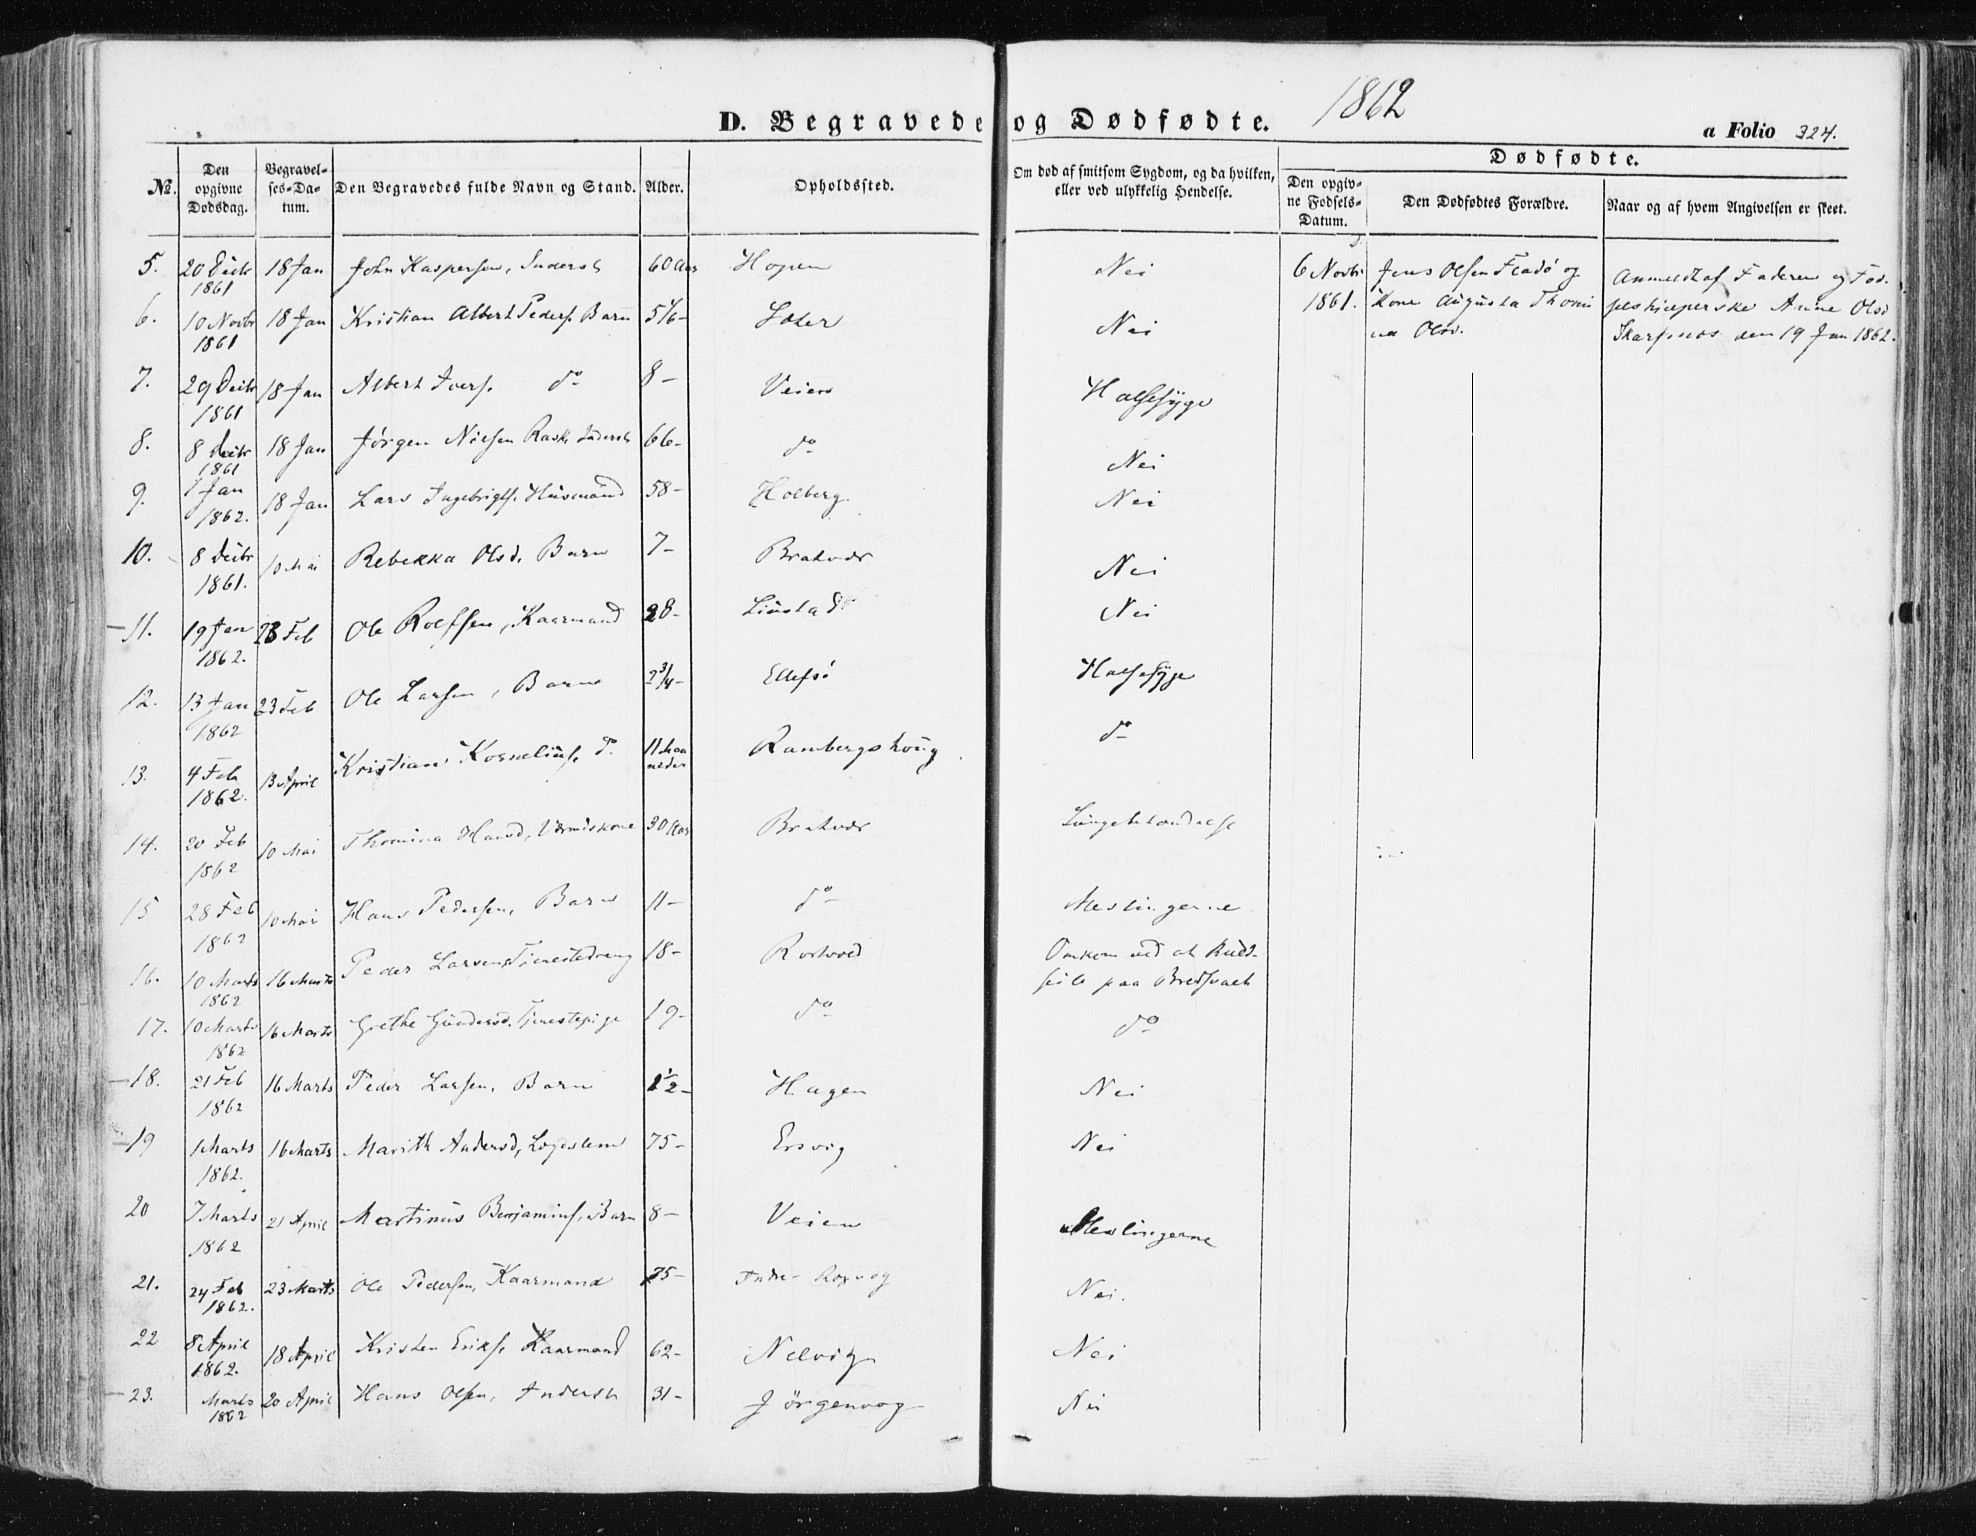 D. Begravede og Dødfødte. 1862
a Folio 324.
No. Den opgivne Dødsdag. Begravelses-Datum. Den Begravedes fulde Navn og Stand. Alder. Opholdssted. Om død af smitsom Sygdom, og da hvilken, eller ved ulykkelig Hendelse.
Dødfødte.
Den opgivne Fødsels-Datum. Den Dødfødtes Forældre. Naar og af hvem Angivelsen er skeet.
5. 20 Decbr 1861 18 Jan John Kaspersen, Inderst 60 Aar Hopen Nei
6 Novbr 1861. Jens Olsen Fladø og Kone Augusta Thomina Olsd. Anmeldt af Faderen og Fødselshjelperske Anne Olsd Skarsnes den 19 Jan 1862.
6. 10 Novbr 1861 18 Jan Kristian Albert Peders. Barn 5 1/6 - Nei
7. 29 Decbr 1861 18 Jan Albert Ivers. do 8 - Veien Halssyge
8. 8 Decbr 1861 18 Jan Jørgen Nielsen Rask Inderst 66 - do Nei
9. 1 Jan 1862. 18 Jan Lars Ingebrigts. Husmand 58 - Holberg. Nei
10. 8 Decbr 1861. 10 Mai Rebekka Olsd. Barn 7 - Bratvær Nei
11. 19 Jan 1862. 23 Feb Ole Rolfsen, Kaarmand 28 - Nei
12. 13 Jan 1862 23 Feb Ole Larsen, Barn 2 3/4 - Ellefsø Halssyge
13. 4 Feb 1862. 13 April Kristian Kornelius. do 11 Maaneder Rambergshoug do
14. 20 Feb 1862 10 Mai Thomina Hansd, 30 Aar Bratvær Lungebetændelse
15 28 Feb 1862 10 Mai Hans Pedersen, Barn 11 - do Meslingerne
16. 10 Marts 1862 16 Marts Peder Larsen, Tjenestedreng 18 - Rostvod Omkom ved at kuldseile paa
17. 10 Marts 1862 16 Marts Grethe Gundersd. Tjenestepige 19 - do do
18. 21 Feb 1862 16 Marts Peder Larsen, Barn 1 1/2 - Hagen Nei
19 1 Marts 1862. 16 Marts Marith Andersd, Lægdslem 75 - Ersvig Nei
20 7 Marts 1862 21 April Martinus Benjamins. Barn 8 - Veien Meslingerne
21. 24 Feb 1862. 23 Marts Ole Pedersen, Kaarmand 75 - Nei.
22 8 April 1862. 18 April Kristen Eriks. Kaarmand 62 - Nelvig Nei
23. Marts 1862 20 April Hans Olsen, Inderst 31 - Jørgenvog Nei